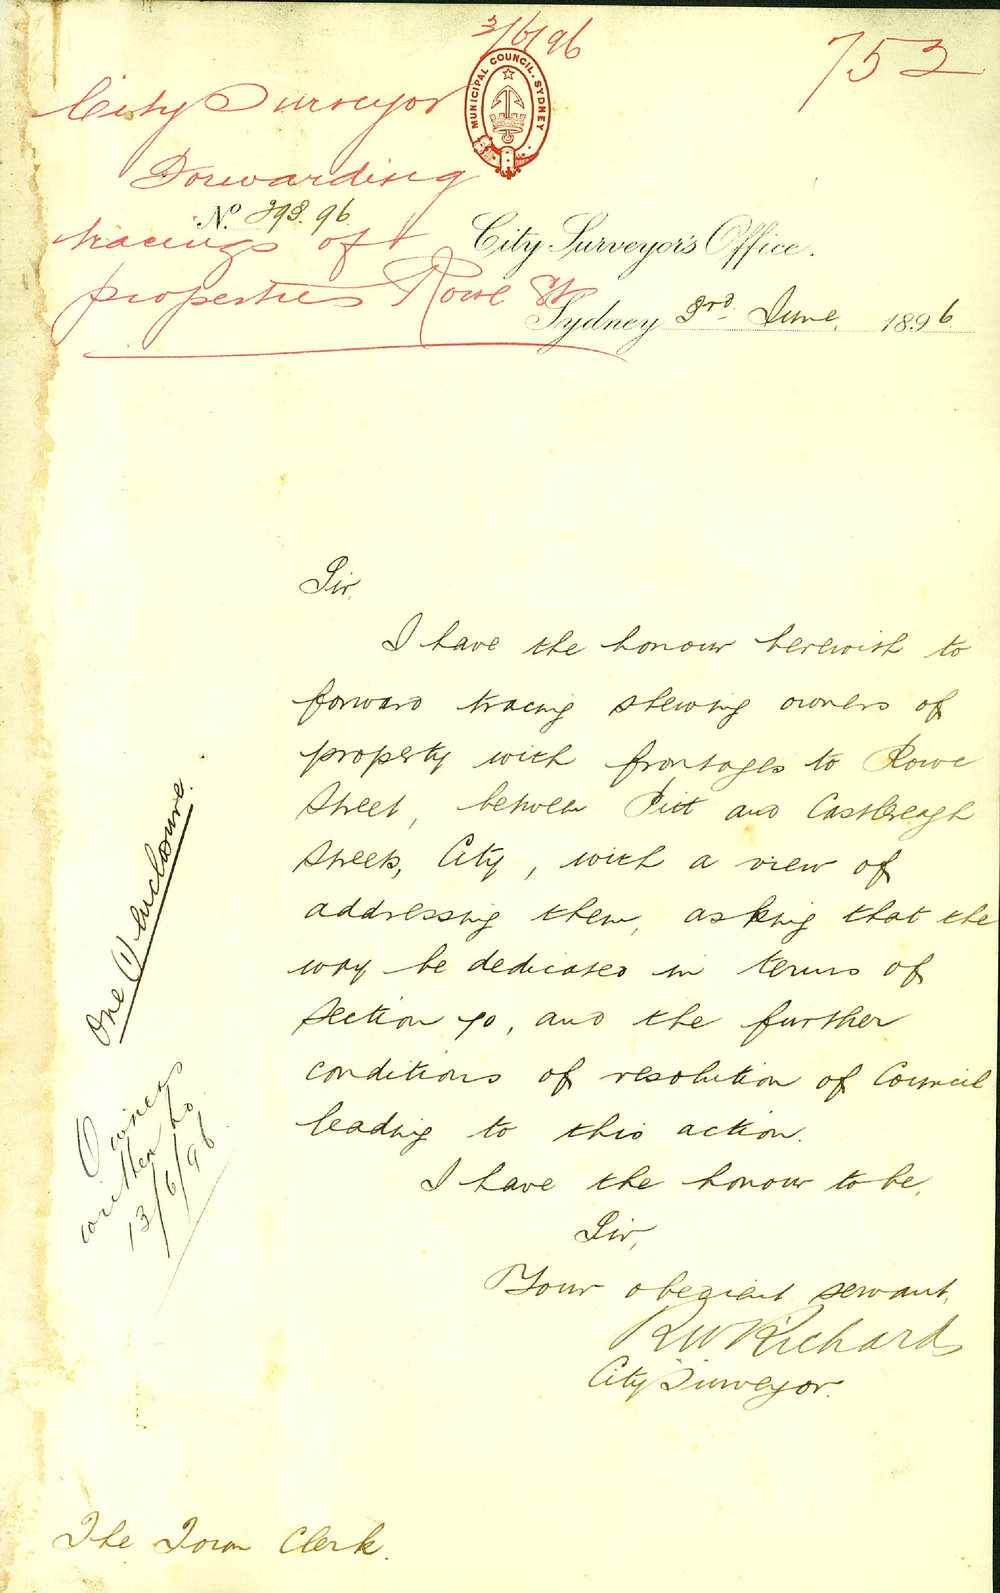 3/6/96
753
MUNICIPAL COUNCIL. SYDNEY
City Surveyor
Forwarding
tracings of
properties Rowe St
No. 298.96
City Surveyor's Office.
Sydney 3rd June 1896
Sir,
I have the honour herewith to
forward tracing shewing owners of
property with frontages to Rowe
Street, between Pitt and Castlereagh
Streets, City, with a view of
addressing them, asking that the
way be dedicated in terms of
Section 70, and the further
conditions of resolution of Council
leading to this action.
I have the honour to be,
Sir,
Your obedient servant,
R W Richards
City Surveyor.
One (1) enclosure.
Owners
written to
13/6/96
The Town Clerk.